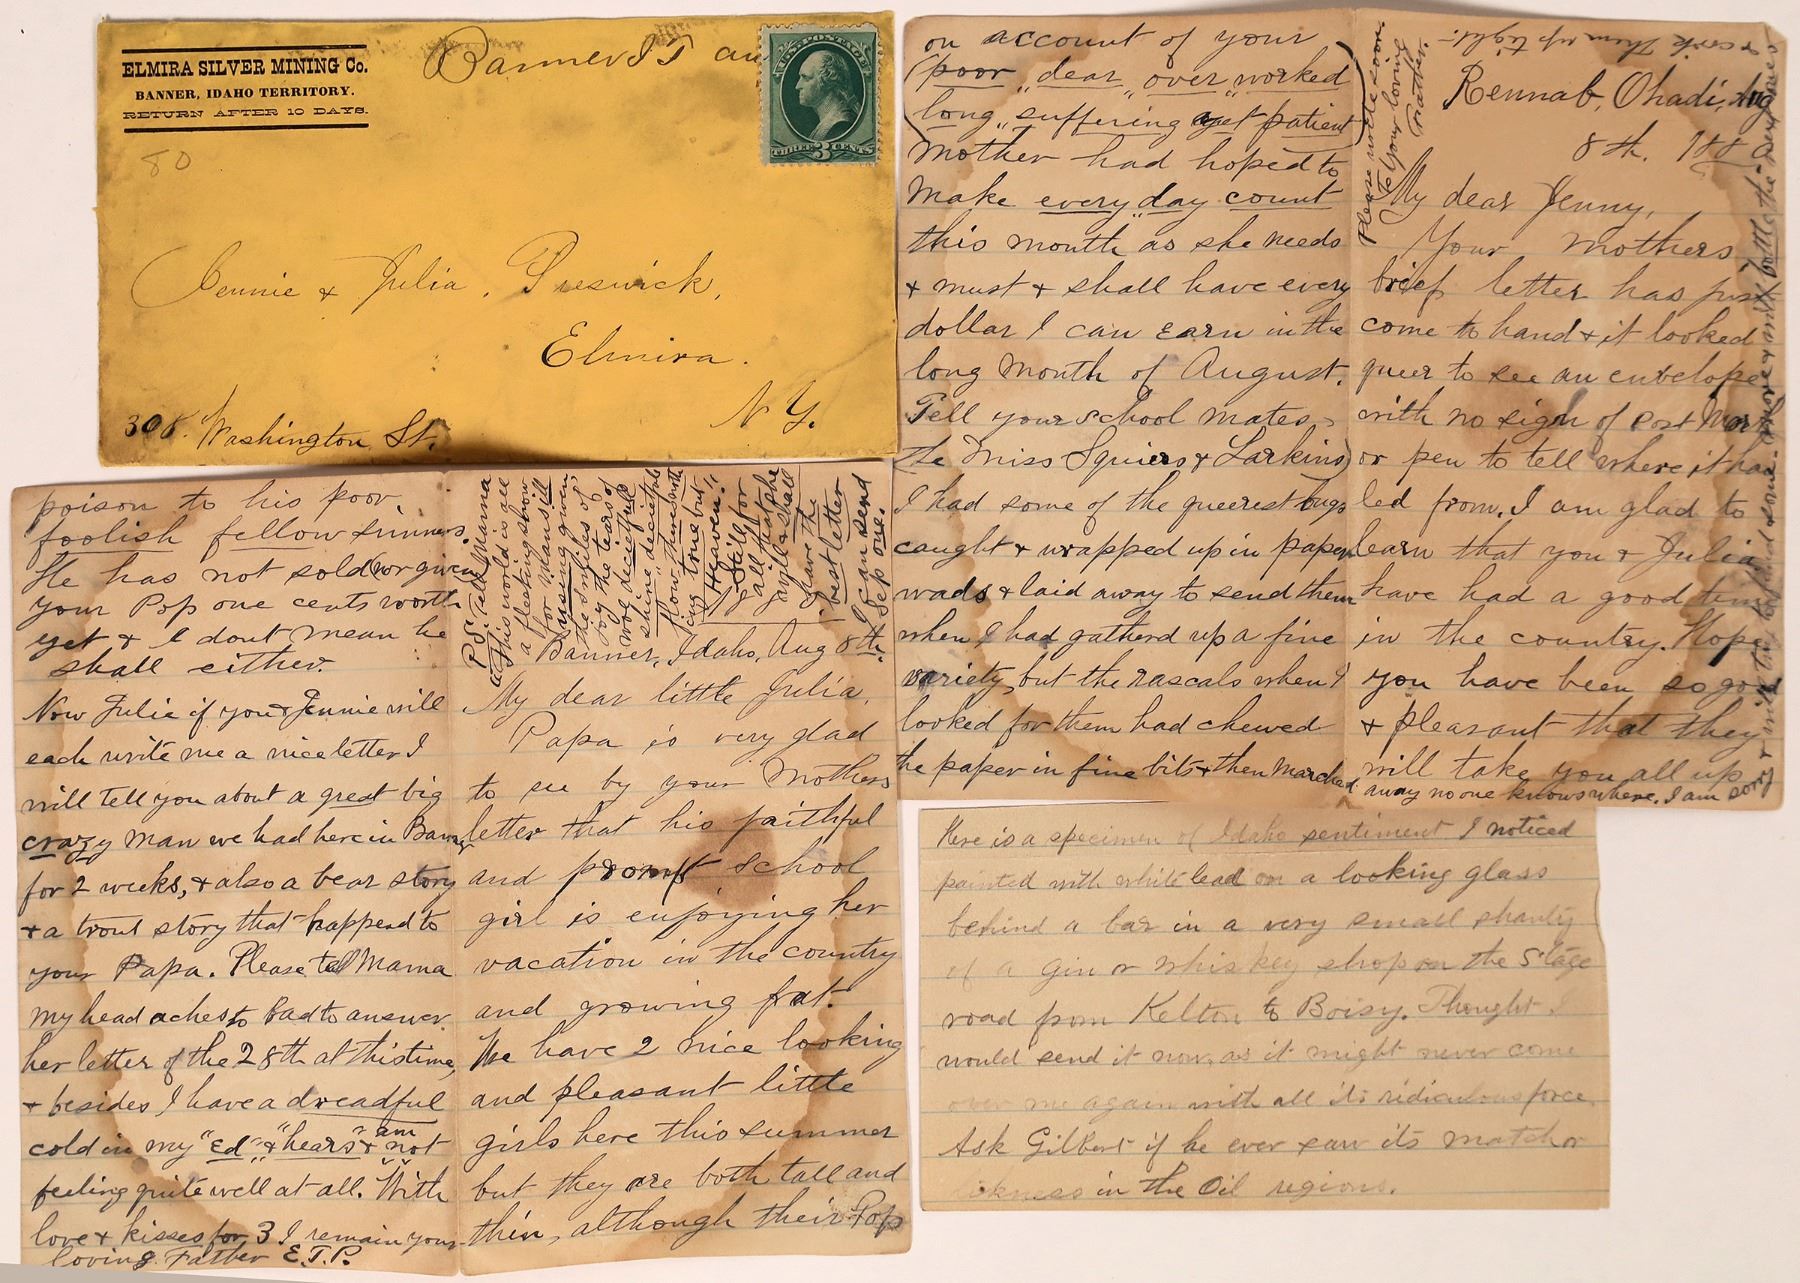 ELMIRA SILVER MINING Co.
BANNER, IDAHO TERRITORY.
RETURN AFTER 10 DAYS.
Banner I T au
U.S. POSTAGE
THREE 3 CENTS
80
Jennie & Julia Preswick,
Elmira.
N Y.
308. Washington St.
Rennab, Ohadi, Aug
8th. 188
My dear Jenny,
Your Mothers
brief letter has just
come to hand & it looked
queer to see an envelope
with no sign of Post Mar
or pen to tell where it ha
led from. I am glad to
learn that you & Julia
have had a good time
in the country. Hope
you have been so good
& pleasant that they
will take you all up
away no one knows where. I am sorry
& cork them up tight.
Please write soon
to your loving
Father.
on account of your
(poor "dear" "over" worked
long "suffering yet patient)
Mother had hoped to
make every "day count
this month as she needs
& must & shall have every
dollar I can earn in the
long month of August.
Tell your school mates
the Miss Squiers & Larkins)
I had some of the queerest bugs
caught & wrapped up in paper
wads & laid away to send them
when I had gatherd up a fine
variety, but the rascals when I
looked for them had chewed
the paper in fine bits & then Marched
Banner, Idaho, Aug 8th.
My dear little Julia,
Papa is very glad
to see by your Mothers
letter that his faithful
and prompt school
girl is enjoying her
vacation in the country
and growing fat.
We have 2 nice looking
and pleasant little
girls here this summer
but they are both tall and
thin, although their Pop
poison to his poor
foolish fellow sinners.
He has not sold (or given
your Pop one cents worth
yet & I dont mean he
shall either.
Now Julie if you & Jennie will
each write me a nice letter I
will tell you about a great big
crazy man we had here in Banner
for 2 weeks, & also a bear story
& a trout story that happend to
your Papa. Please tell Mama
my head aches to bad to answer
her letter of the 28th at this time,
& besides I have a dreadful
cold in my "Ed" & "hears" & am not
feeling quite well at all. With
love & kisses for 3 I remain your
loving Father E.T.P.
P.S. Tell Mama
"This world is all
a fleeting show
for Mans ill
usion given
the smiles of
joy the tears of
woe deceitful
shine deceitful
flow theres noth
ing true but
Heaven."
Still for
all that she
shall
have the
best letter
I can send
Sep one.
Here is a specimen of Idaho sentiment I noticed
painted with white lead on a looking glass
behind a bar in a very small shanty
of a gin or whiskey shop on the Stage
road from Kelton to Boisy. Thought I
would send it now, as it might never come
over me again with all its ridiculous force.
Ask Gilbert if he ever saw its match or
in the Oil regions.